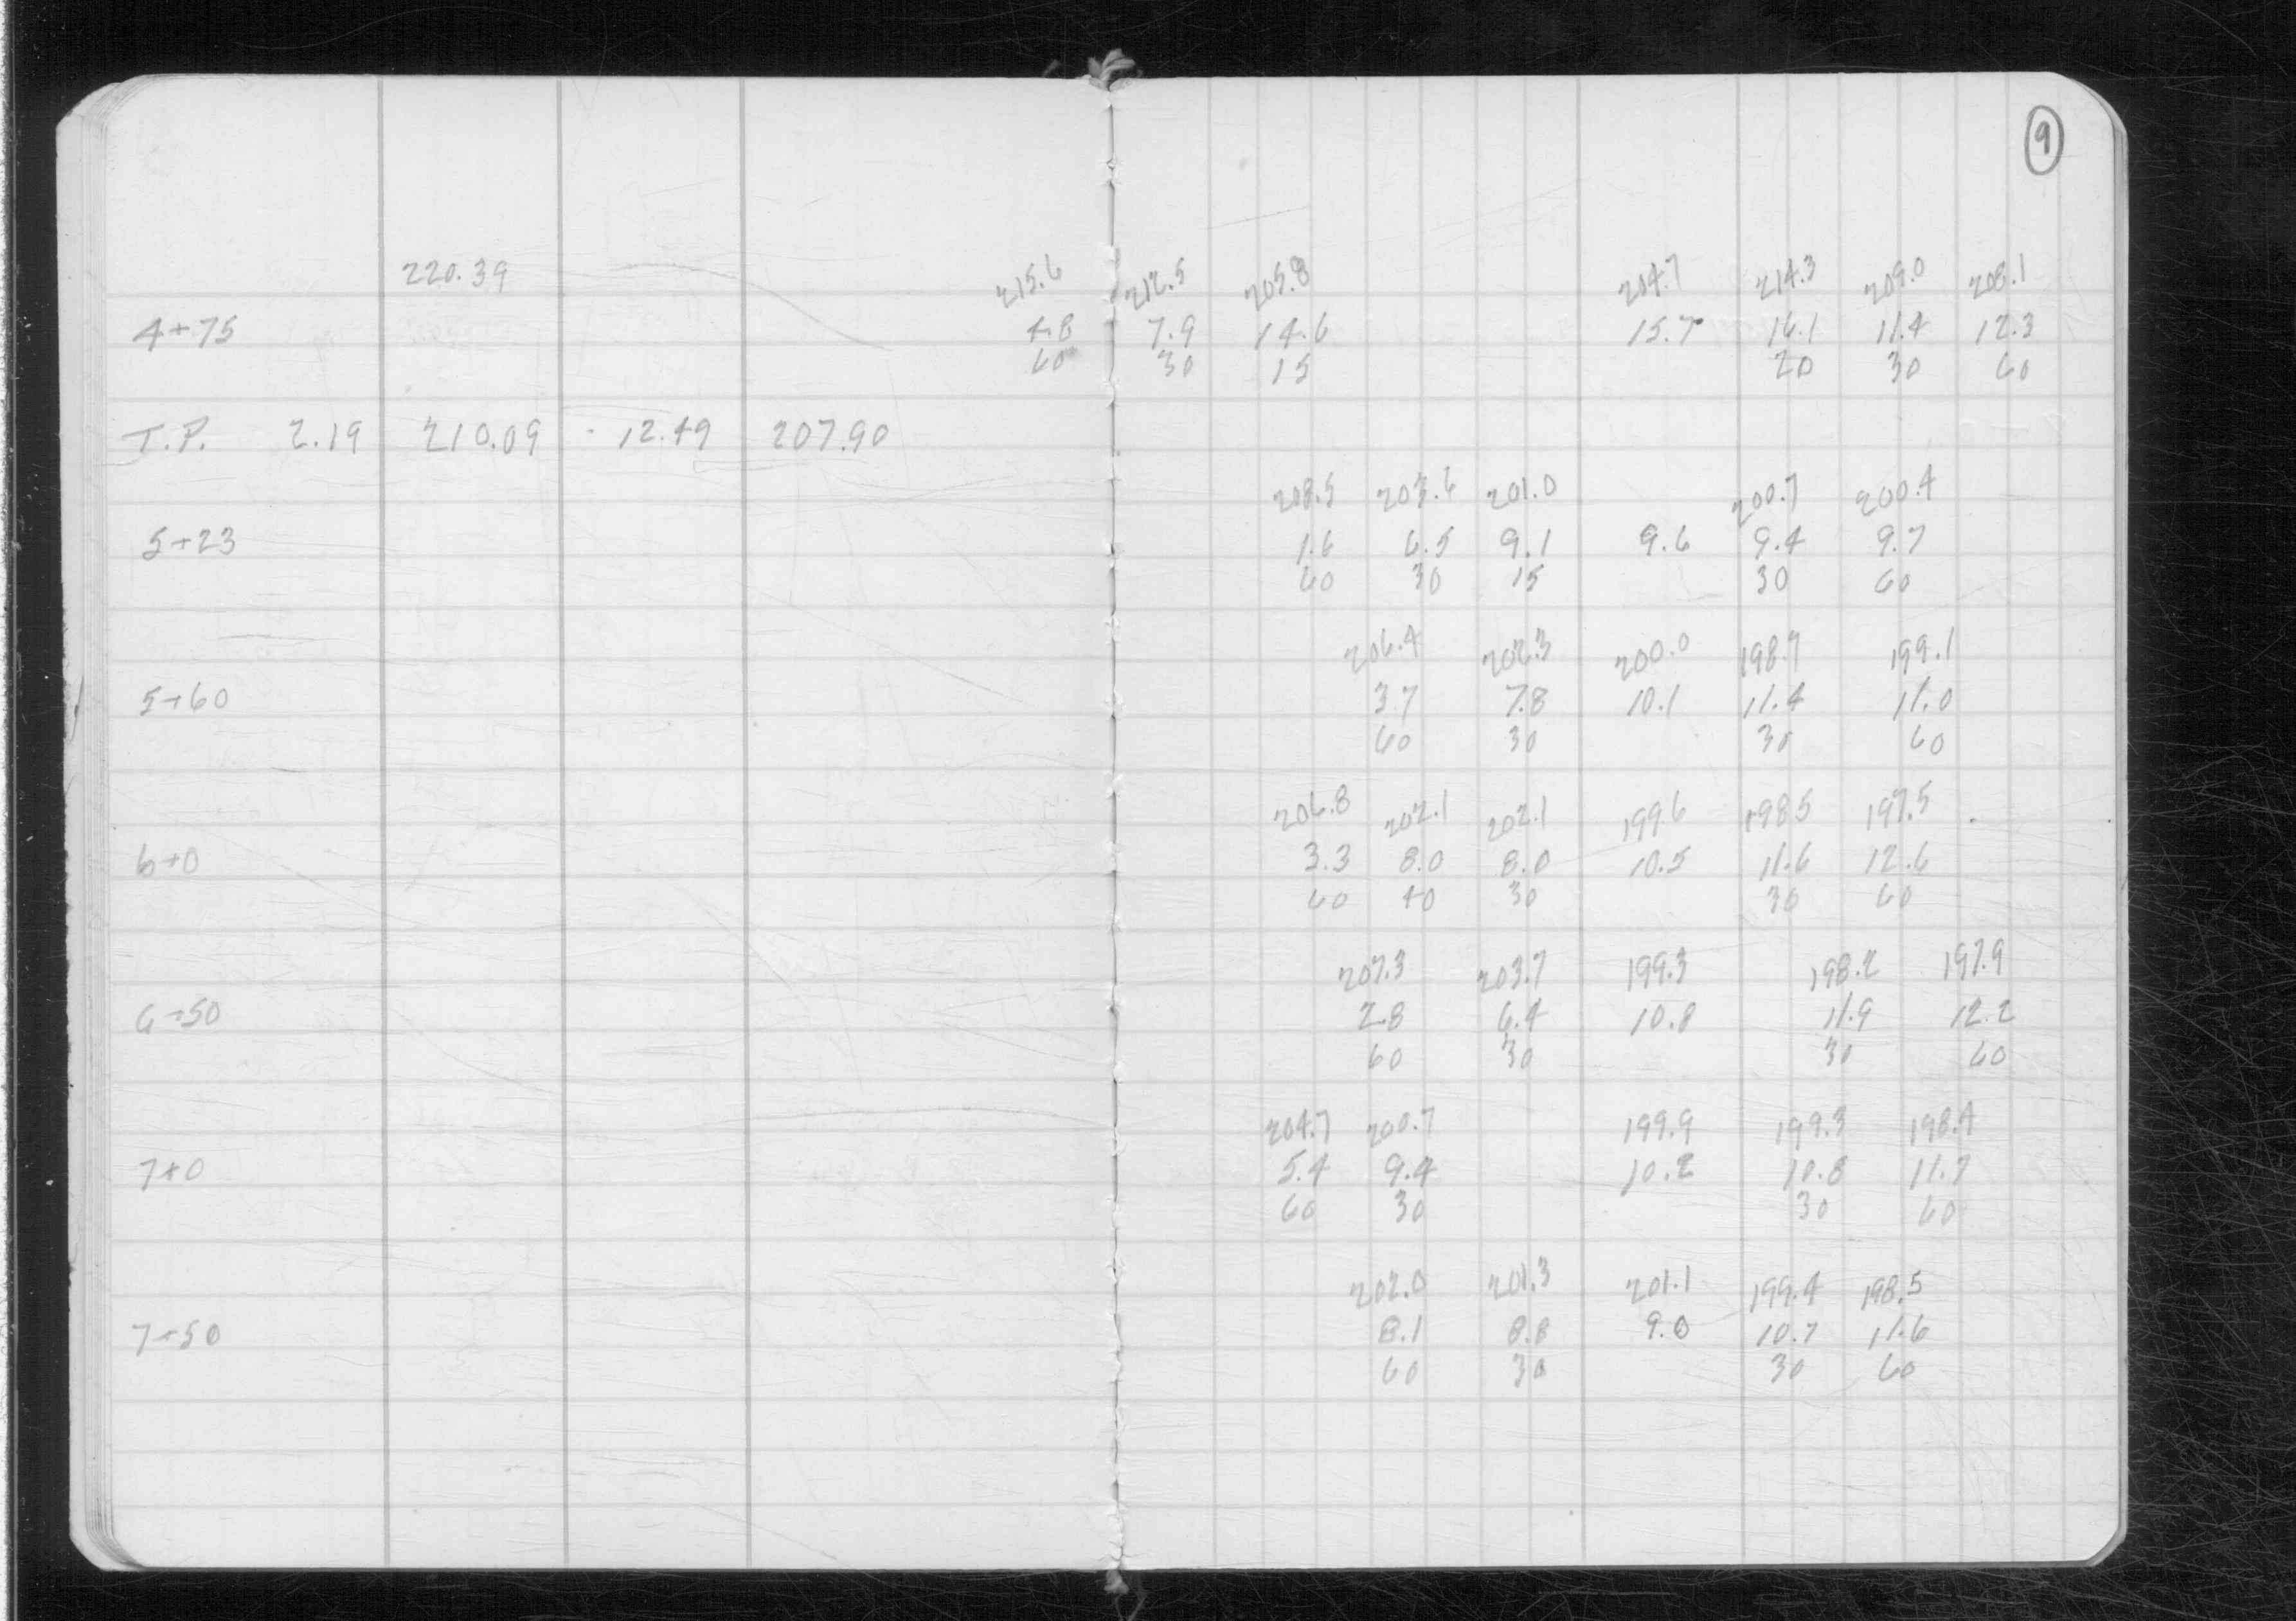 9
220.39 215.6 212.5 205.8 204.7 214.3 209.0 208.1
4+75 4.8 7.9 14.6 15.7 16.1 11.4 12.3
60 30 15 20 30 60
T.P. 2.19 210.09 12.49 207.90
208.5 203.6 201.0 200.7 200.4
5+23 1.6 6.5 9.1 9.6 9.4 9.7
60 30 15 30 60
206.4 202.3 200.0 198.7 199.1
5+60 3.7 7.8 10.1 11.4 11.0
60 30 30 60
206.8 202.1 202.1 199.6 198.5 197.5
6+0 3.3 8.0 8.0 10.5 11.6 12.6
60 40 30 30 60
207.3 203.7 199.3 198.2 197.9
6+50 2.8 6.4 10.8 11.9 12.2
60 30 30 60
204.7 200.7 199.9 199.3 198.4
7+0 5.4 9.4 10.2 10.8 11.7
60 30 30 60
202.0 201.3 201.1 199.4 198.5
7+50 8.1 8.8 9.0 10.7 11.6
60 30 30 60